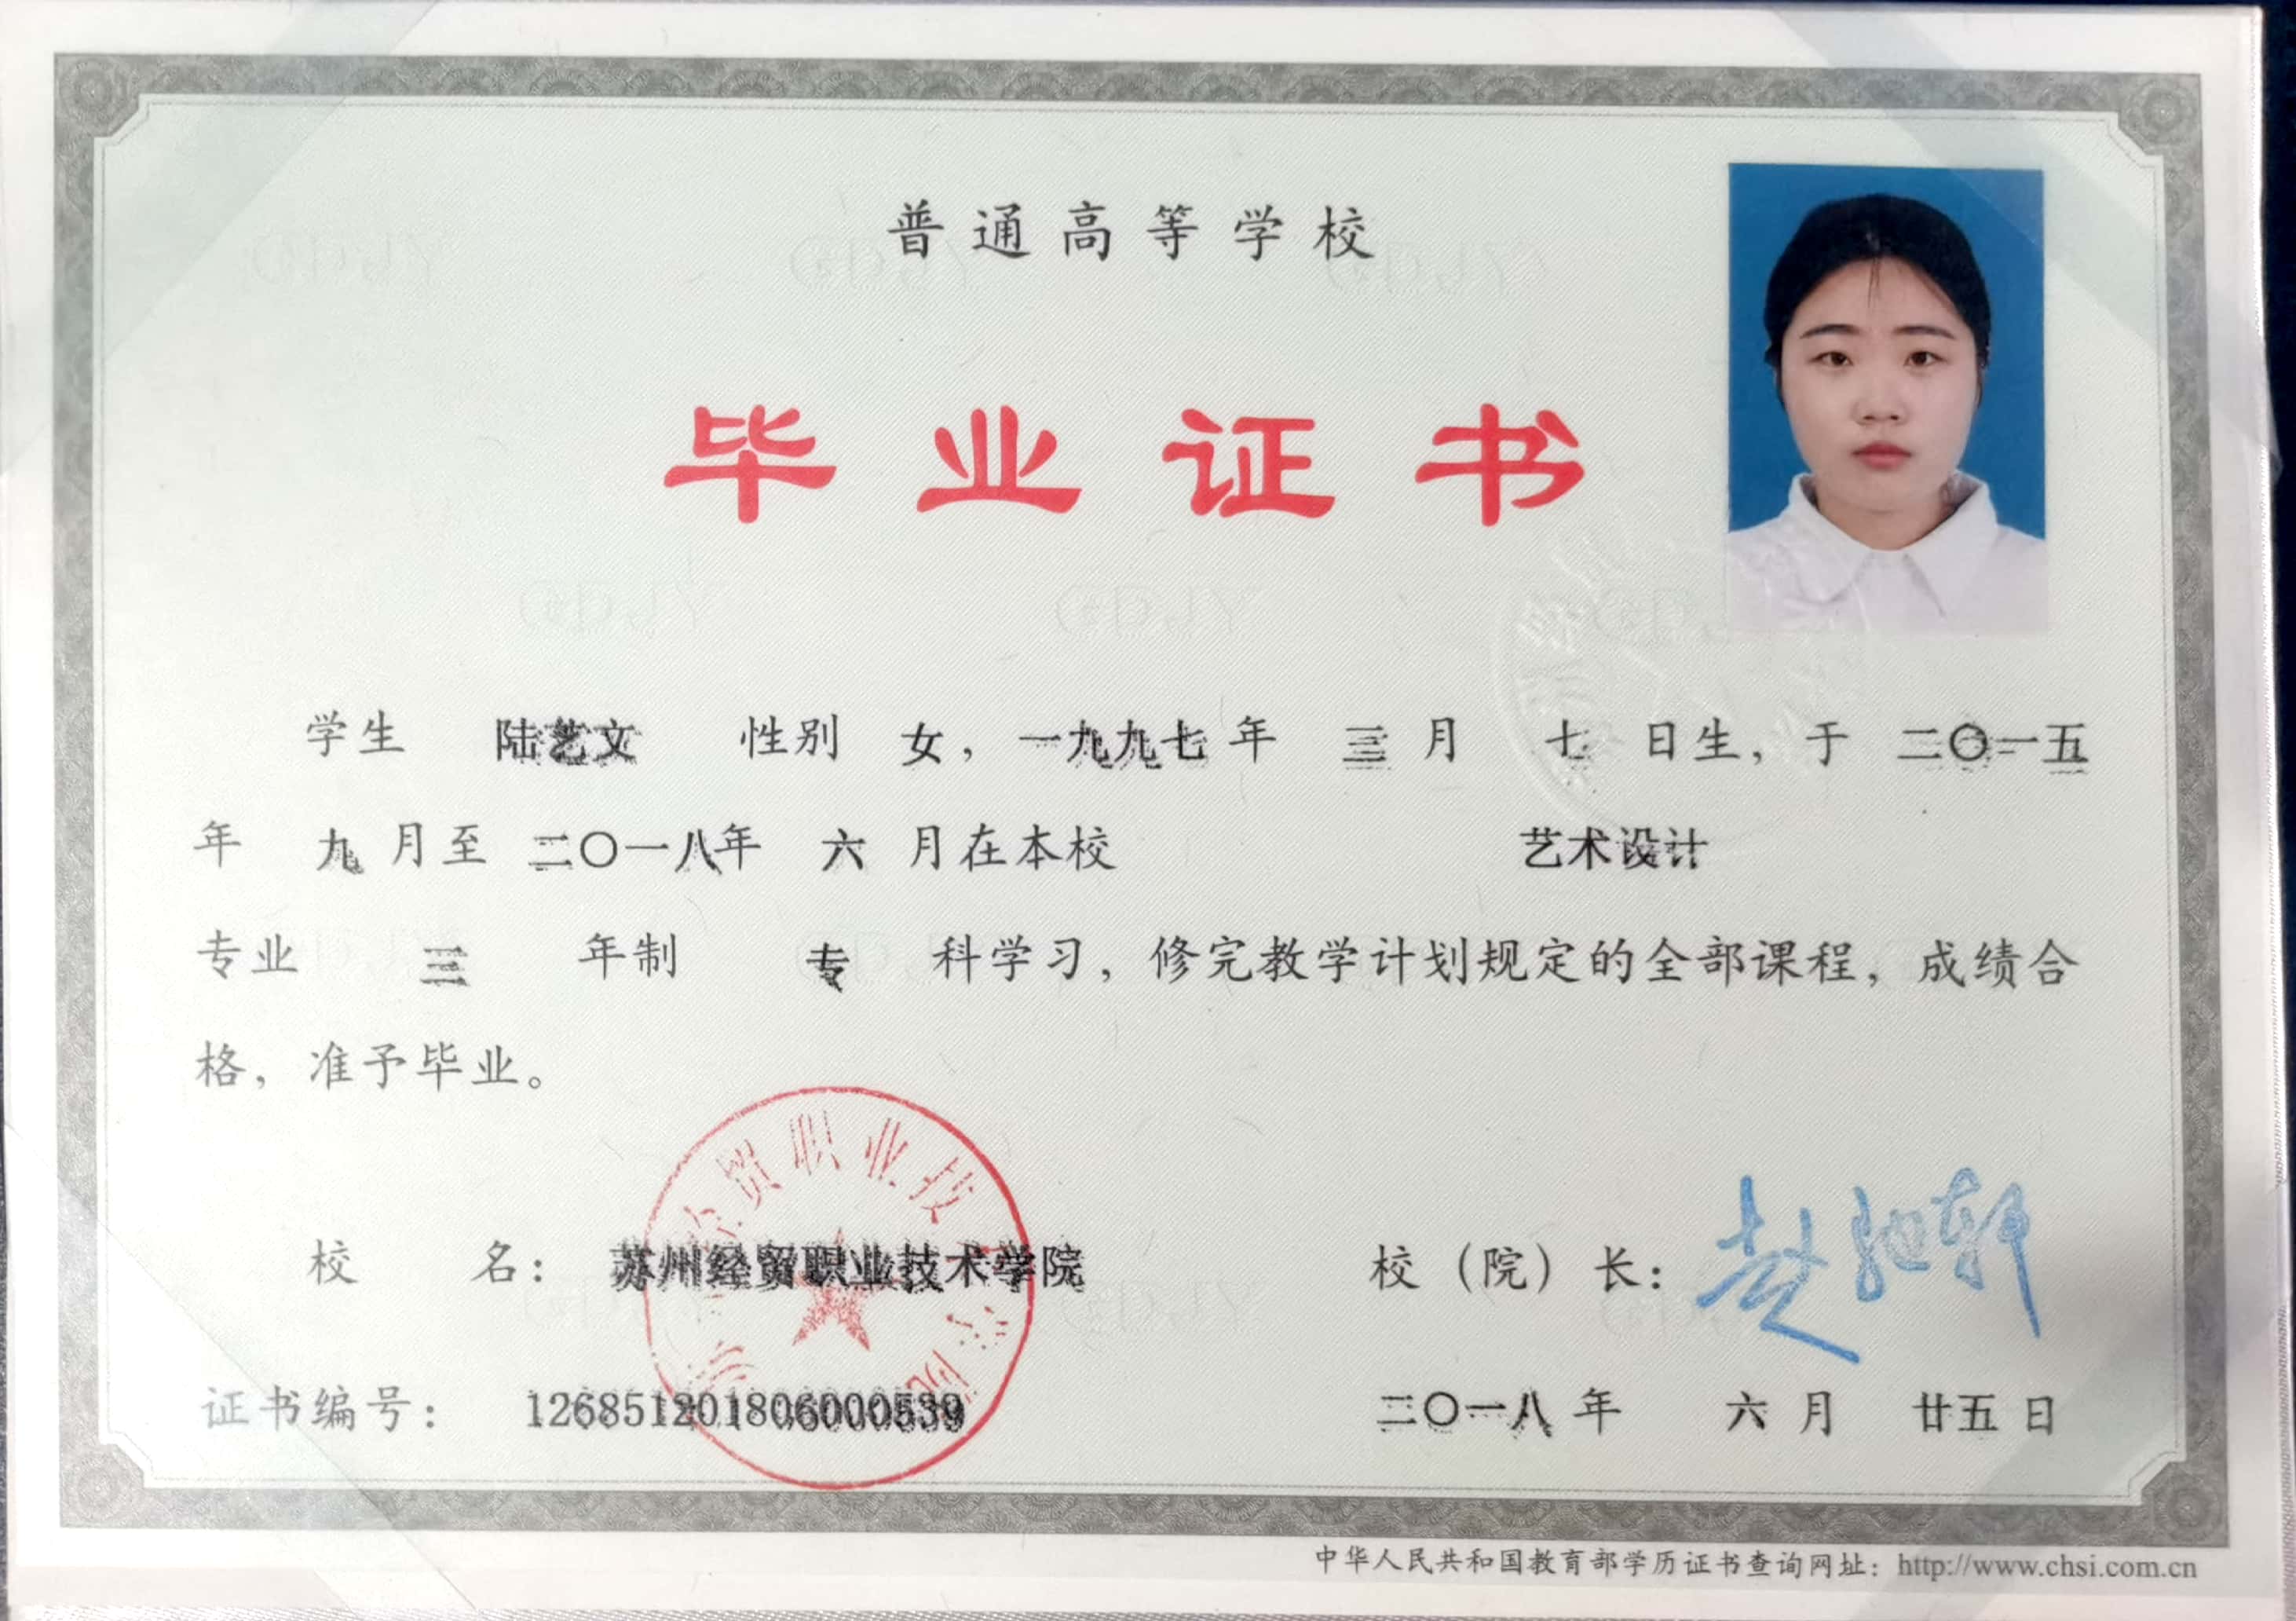 普通高等学校
毕业证书
学生 陆艺文 性别 女，一九九七年 三月 七 日生，于 二〇一五
年 九月至 二〇一八年 六 月在本校 艺术设计
专业 三 年制 专 科学习，修完教学计划规定的全部课程，成绩合
格，准予毕业。
贸职业技
校 名：苏州经贸职业技术学院 校（院）长：
证书编号：126851201806000539 二〇一八年 六月 廿五日
中华人民共和国教育部学历证书查询网址：http://www.chsi.com.cn